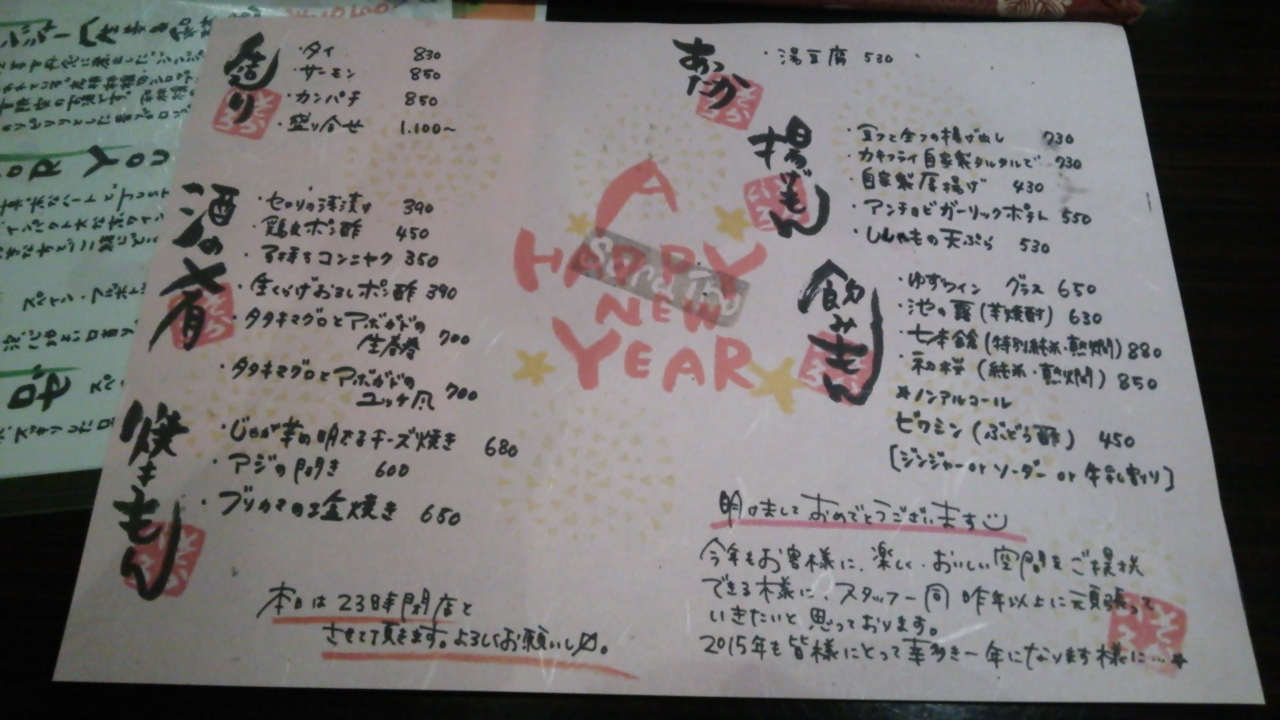 造り
・タイ 830
・サーモン 850
・カンパチ 850
・盛り合せ 1.100〜
酒の肴
・セロリの浅漬け 390
・鶏皮ポン酢 450
コンニャク 350
・生くらげおろしポン酢 390
・タタキマグロとアボガドの
生春巻 700
・タタキマグロとアボガドの
ユッケ風 700
焼きもん
・じゃが芋の明太チーズ焼き 680
・アジの開き 600
・ブリカマの塩焼き 650
本日は23時閉店と
させて頂きます。よろしくお願いします。
A
HAPPY
NEW
YEAR
あったか
・湯豆腐 530
揚げもん
の揚げ出し 730
・カキフライ自家製タルタルで 930
・自家製厚揚げ 430
・アンチョビガーリックポテト 550
・ししゃもの天ぷら 530
飲みもん
・ゆずワイン グラス 650
・池の露(芋焼酎) 630
・七本鎗(特別純米・熱燗) 880
・初桜(純米・熱燗) 850
★ノンアルコール
ビワミン(ぶどう酢) 450
[ジンジャー or ソーダー or 牛乳割り]
明けましておめでとうございます
今年もお客様に、楽しく・おいしい空間をご提供
できる様に、スタッフ一同 昨年以上に頑張って
いきたいと思っております。
2015年も皆様にとって幸多き一年になります様に…★